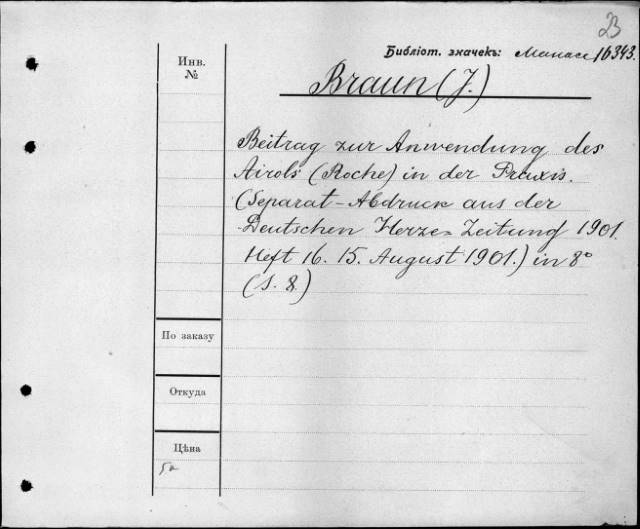 23
Библіот. значекъ: Манасс 16343.
Инв.
№
Braun (J.)
Beitrag zur Anwendung des
Airols (Roche) in der Praxis.
(Separat-Abdruck aus der
Deutschen Herze-Zeitung 1901.
Heft 16. 15. August 1901.) in 8°
(S. 8.)
По заказу
Откуда
Цѣна